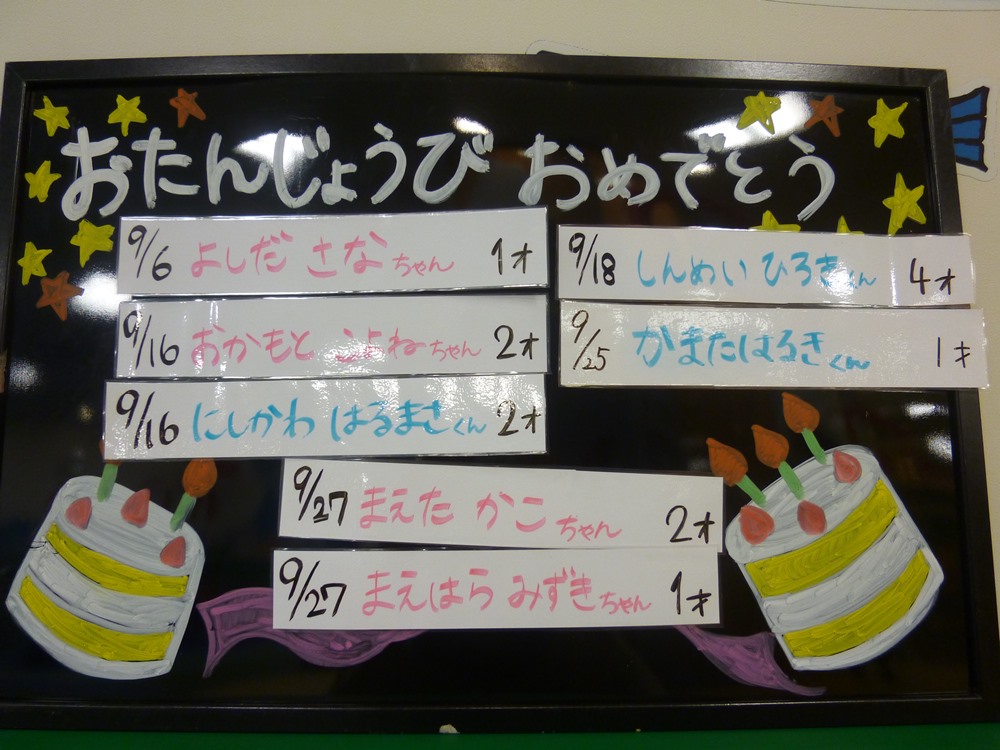 おたんじょうび おめでとう
9/6 よしだ さなちゃん 1才
9/16 おかもと ことねちゃん 2才
9/16 にしかわ はるまさくん 2才
9/18 しんめい ひろきくん 4才
9/25 かまたはるきくん 1才
9/27 まえた かこちゃん 2才
9/27 まえはら みずきちゃん 1才